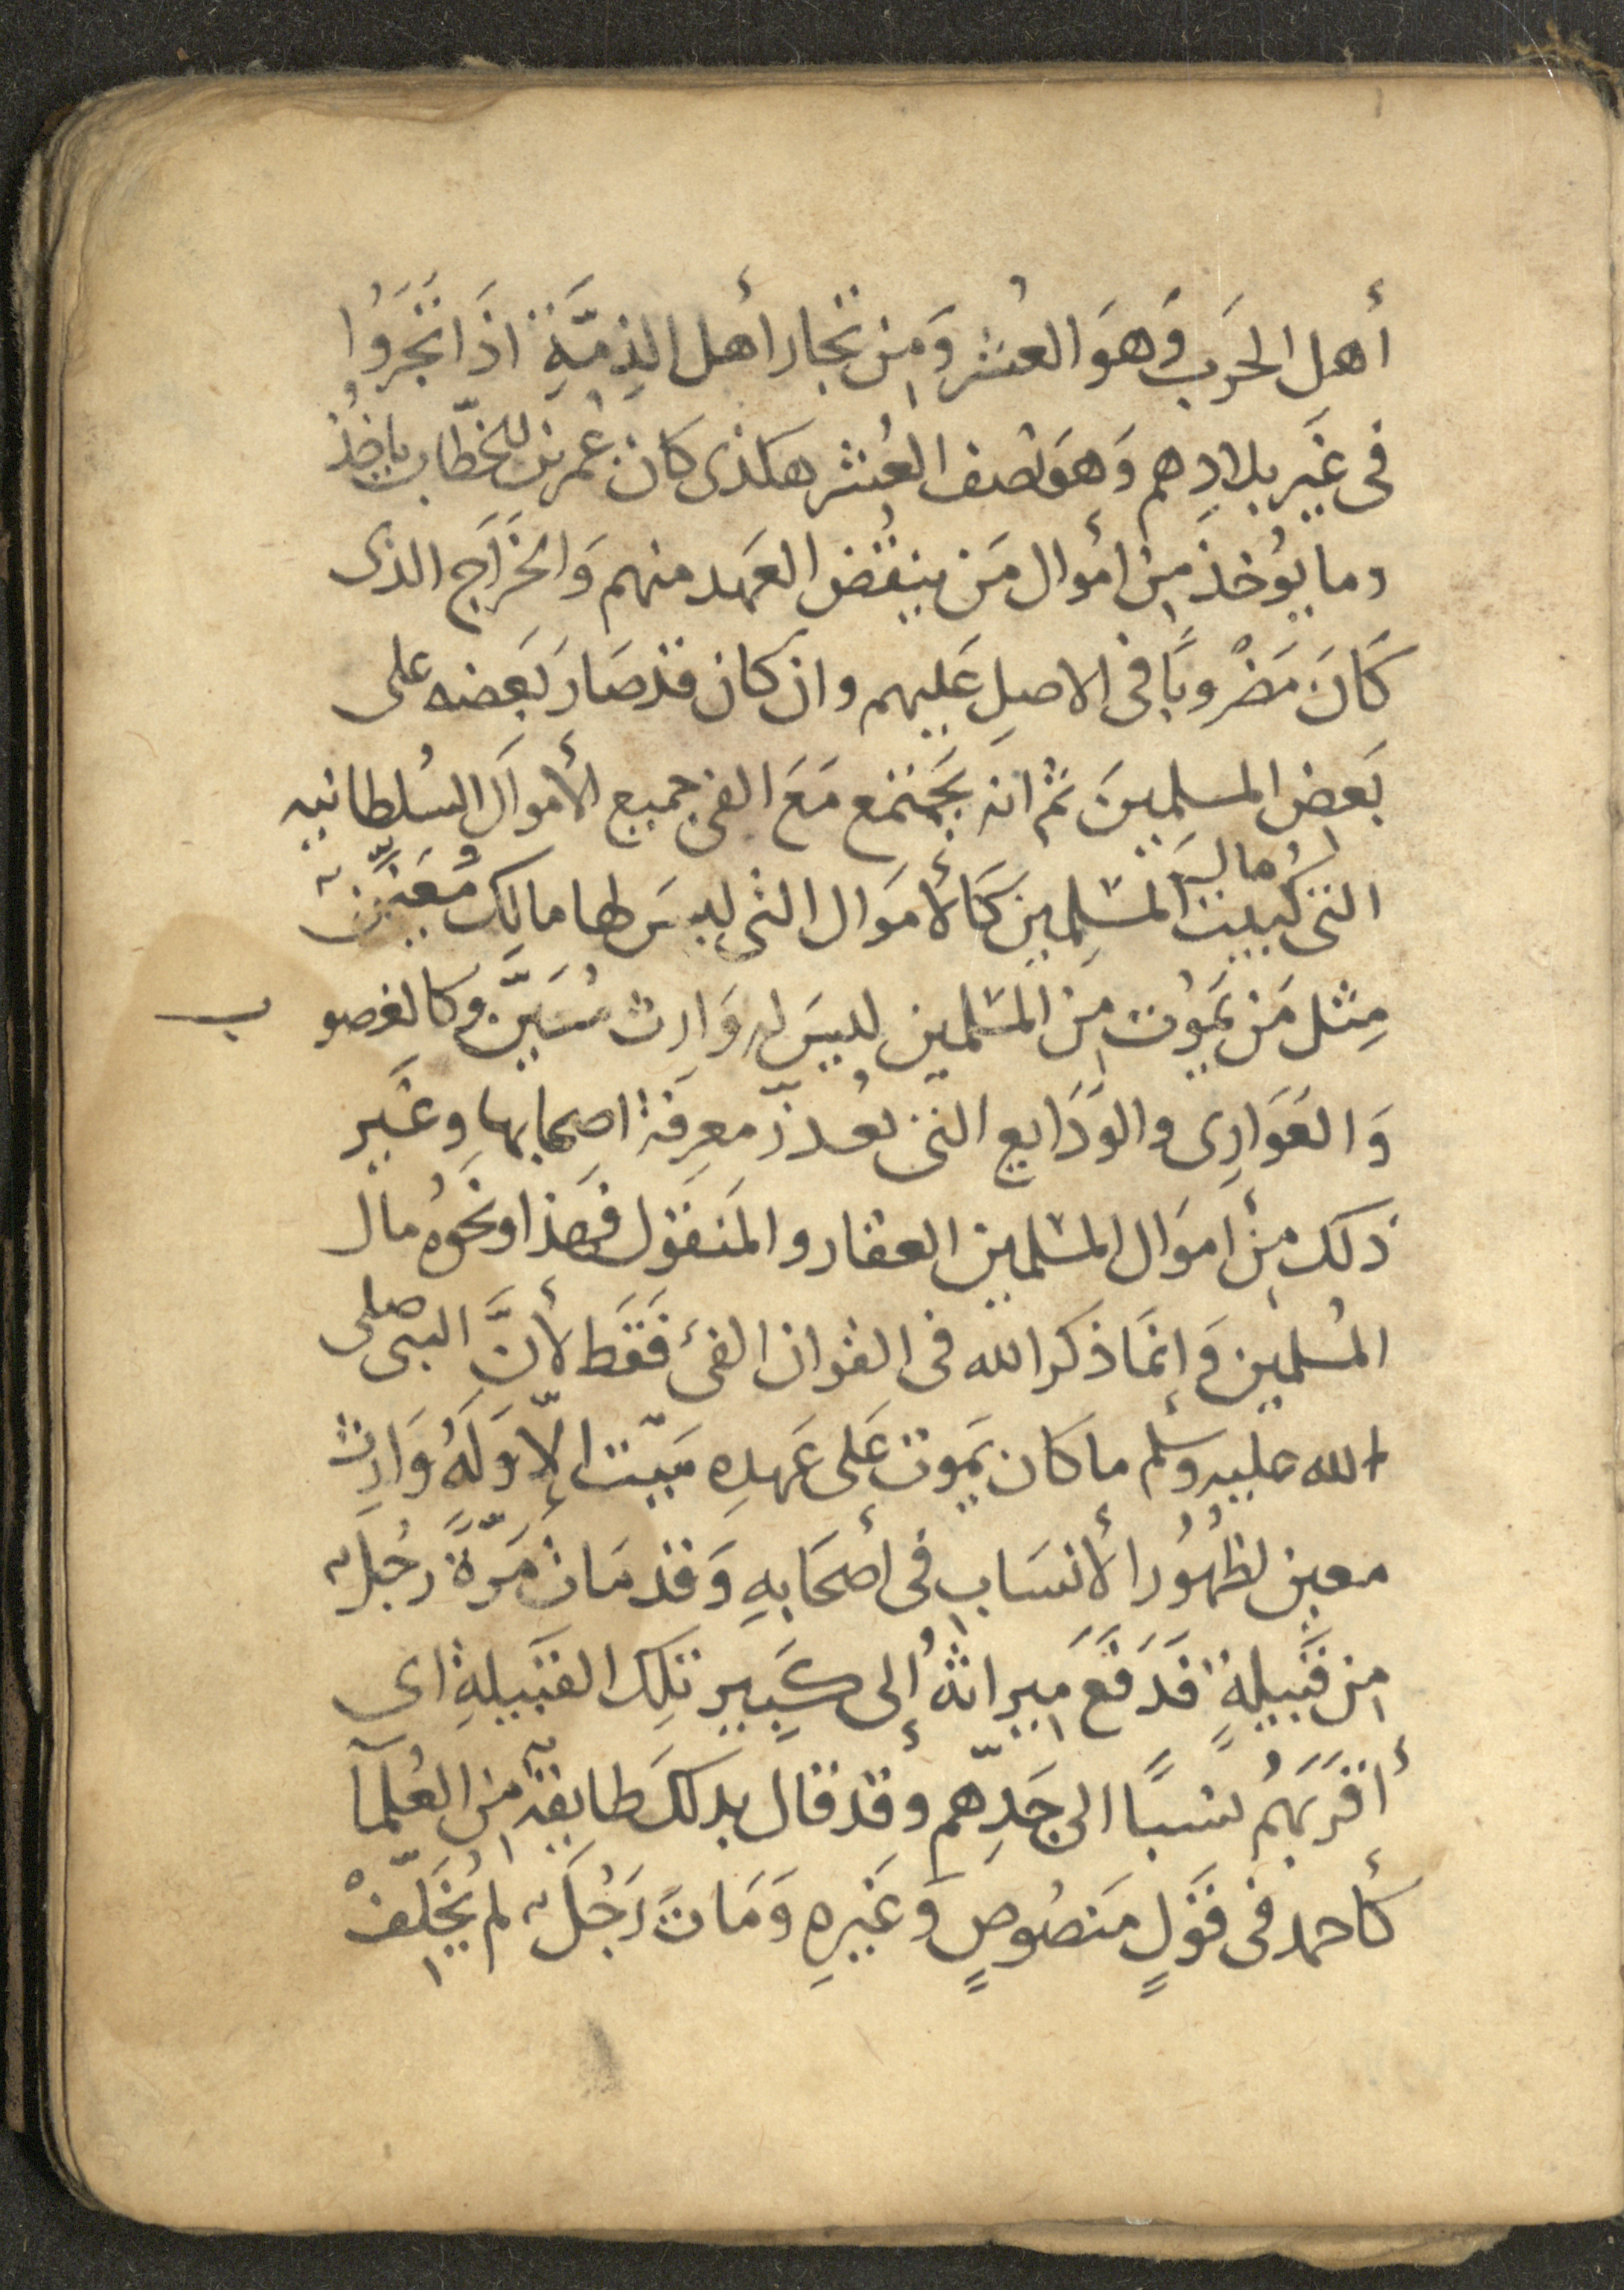 أهل الحَرَب وَهوَ العُشر وَمِن تجار أهل الذِمَّةِ اذَا اتجَرُوا
فى غَيَر بلادِهم وَهوَ نصف العُشر هكذى كان عُمر بن الخطّاب ياخذ
وما يوُخذ مِن أموال مَن ينقُض العَهد منهم وَالخَرَاج الذى
كَانَ مَضْروبًا فى الاصلِ عَليهم وان كان قد صَارَ بَعضه على
بَعض المسلمينَ ثم انه يجَتمع مَعَ الفئ جميع الأموال السُلطانيه
التى لبيت مال المسْلِمين كَالأموَال التى ليسَ لها مالِك مُعَيَّن
مِثل مَن يَموُت مِن المسْلمين ليسَ له وَارِث مُسَيَّن وكالغصوب
وَالعَوَارِى والوَدَايع التى تعُذّر معرِفة اصحابها وغَير
ذلك مِن أموَال المسْلمين العقار والمَنقوَل فهَذا ونحَوُه مال
المُسلمين وَإنمَا ذكر الله فى القران الفئ فقَط لأنَّ النبى صلى
الله عليه وسلم ما كان يَموت عَلى عَهدِه مَيّت إلّا وَلَهُ وَارِث
معين لظهُوُر الأنسَاب فى أصحَابهِ وَقد مَات مَرّةً رجُلٌ
مِن قَبيلةٍ فَدَفَعَ مِيراثهُ إلى كَبِيرِ تلِك القبَيلةِ اى
أقرَبَهُم نسبًا الى جَدِّهم وقد قال بدلكَ طايفةٌ مِن العُلمآ
كأحمد فى قوَلٍ مَنصُوصٍ وَغَيرِهِ وَمَاتَ رَجُلٌ لم يُخَلِّفْ